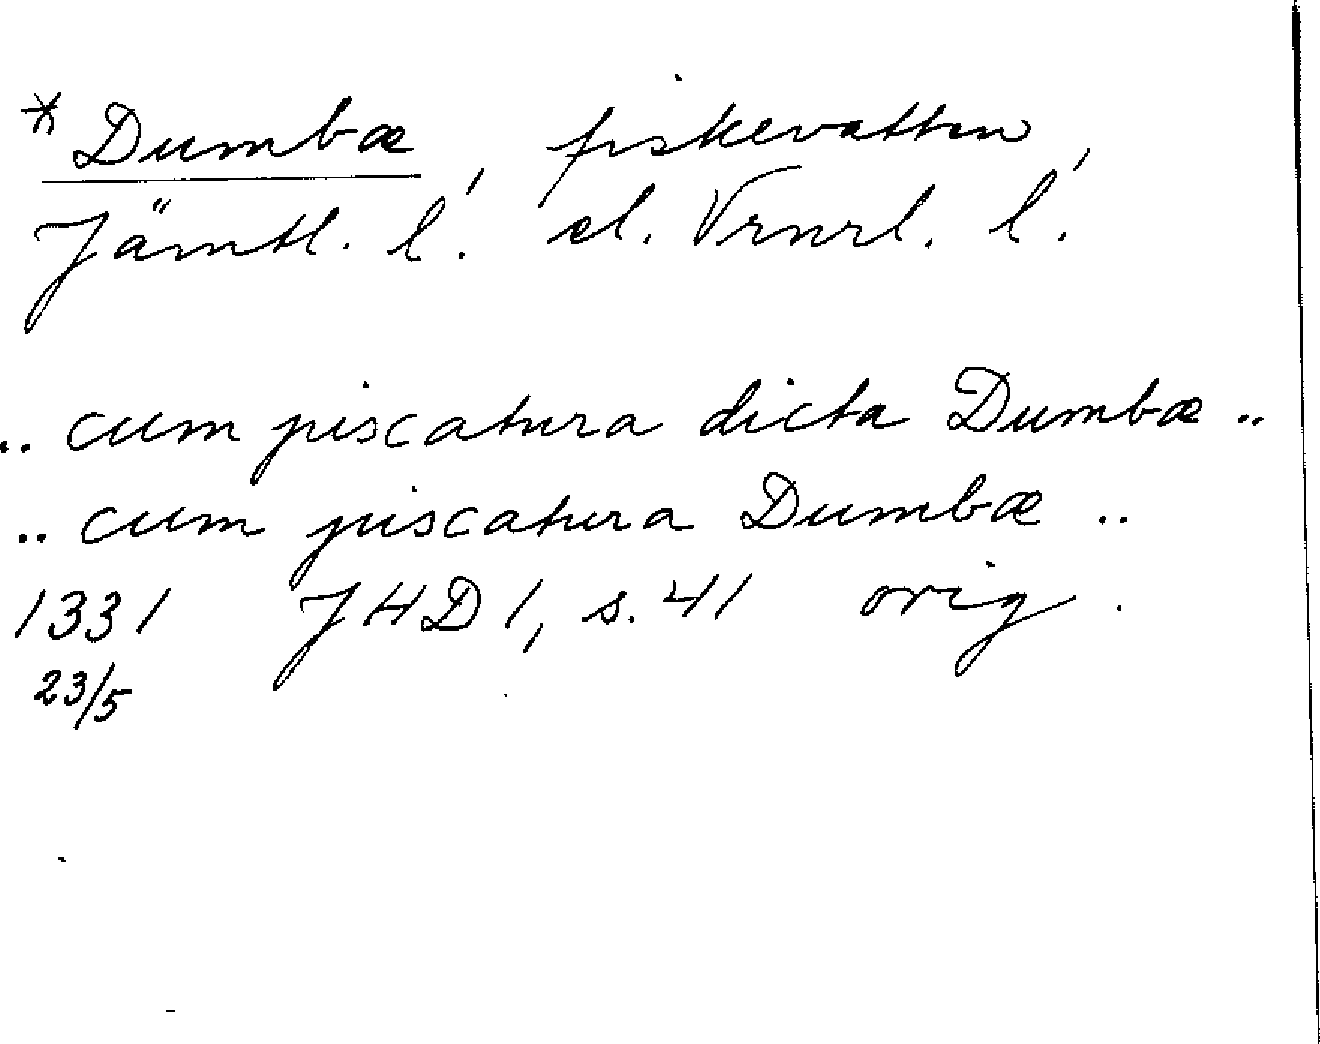 * Dumbæ, fiskevatten,
Jämtl. l. el. Vrnrl. l.
.. cum piscatura dicta Dumbæ ..
.. cum piscatura Dumbæ ..
1331 JHD 1, s. 41 orig.
23/5